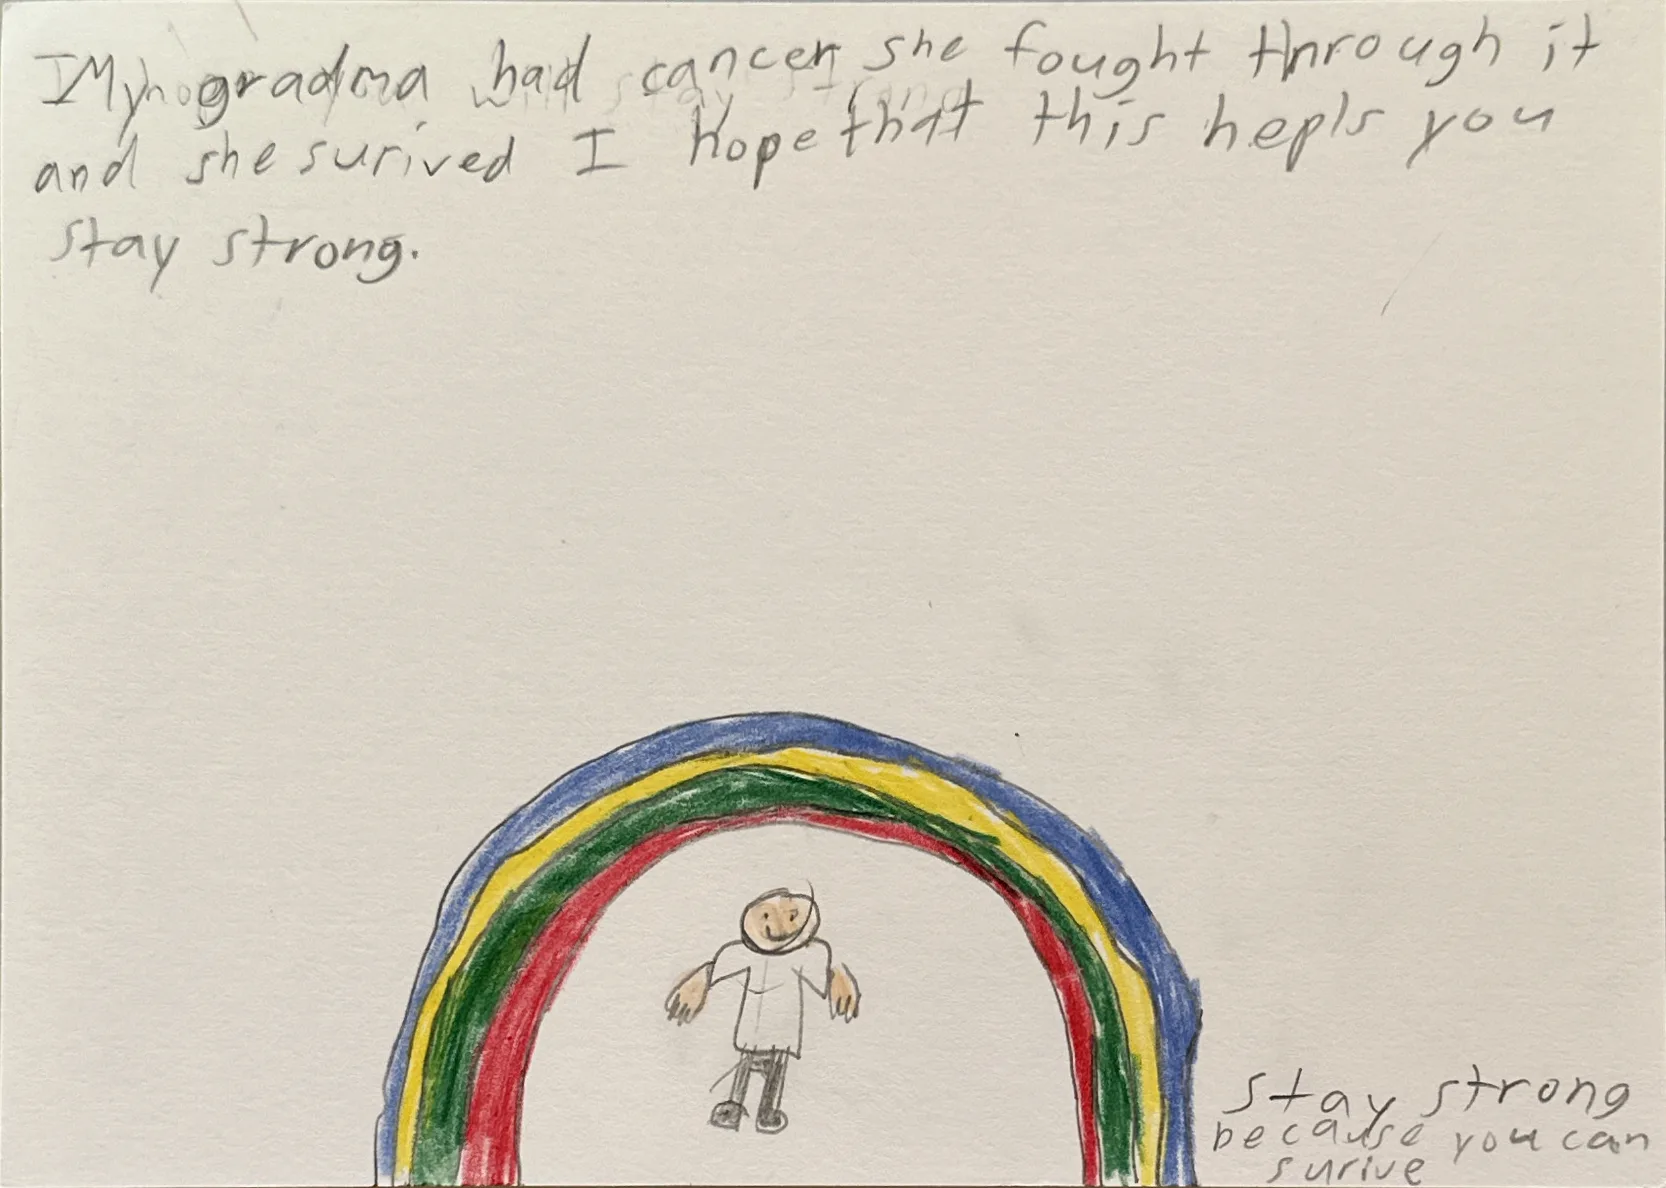 My gradma had cancer she fought through it
and she surived I hope that this hepls you
stay strong.
stay strong
because you can
surive